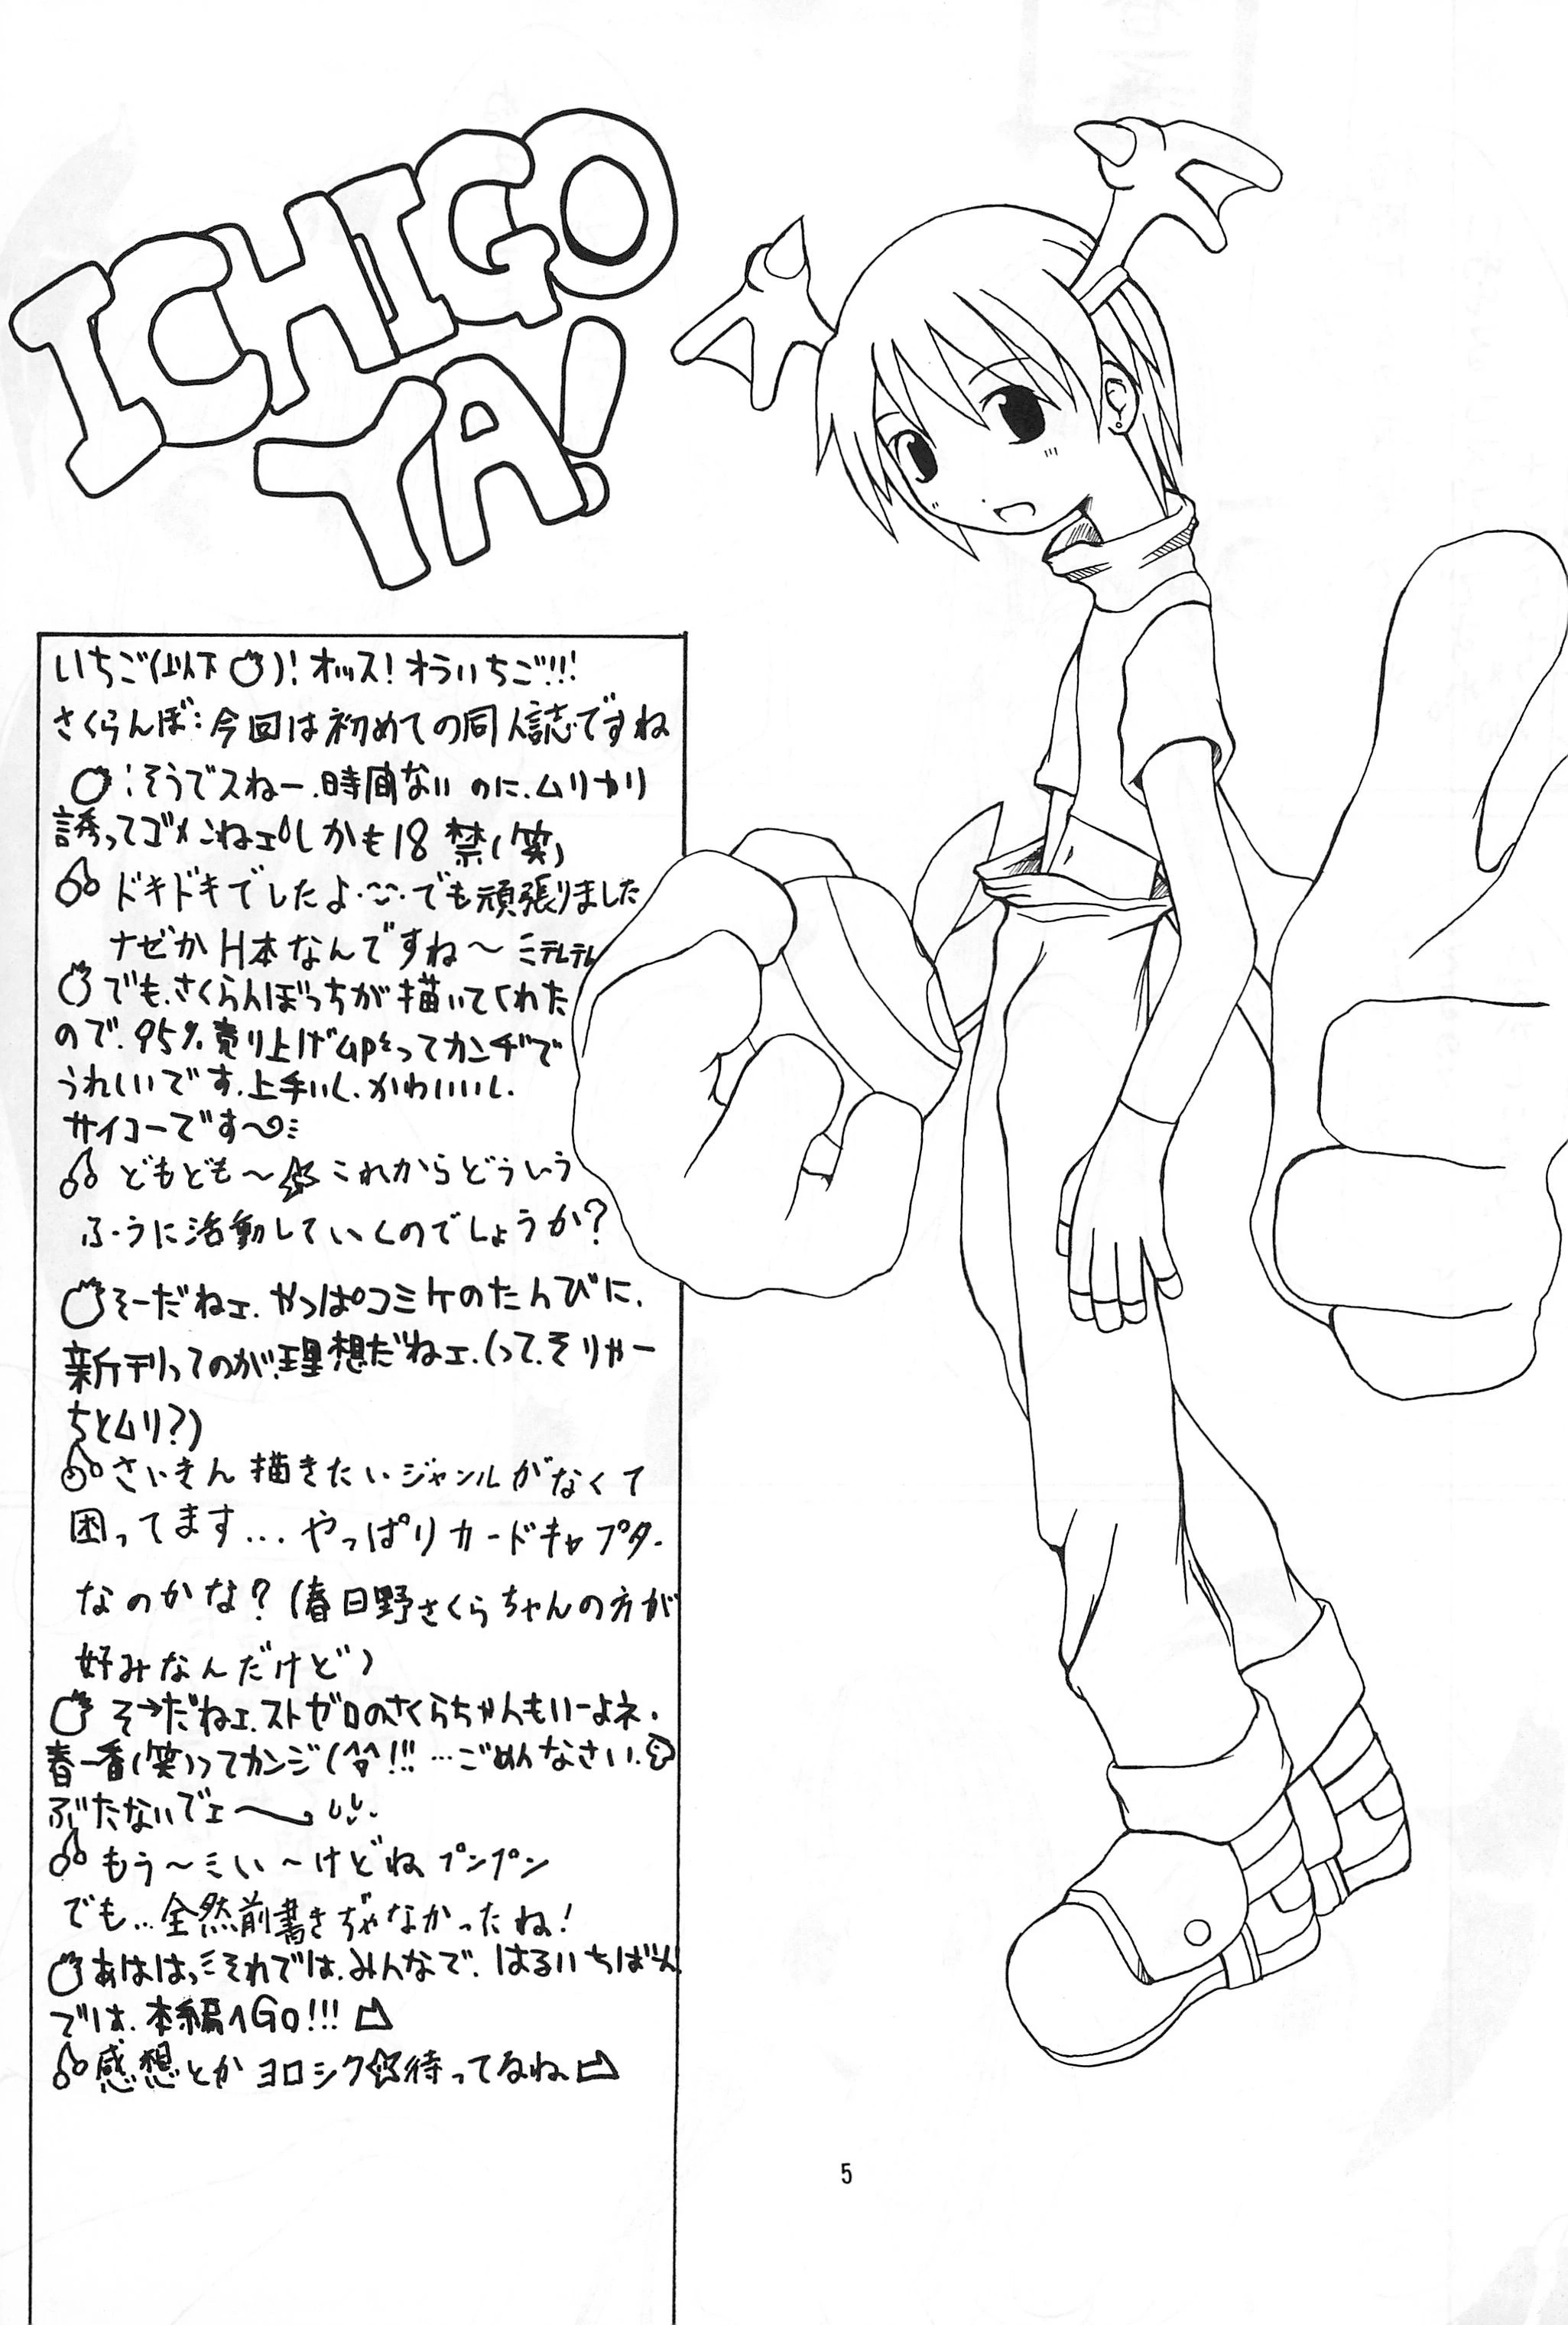 ICHIGO
YA!
いちご(以下 )!オッス!オラいちご!!!
さくらんぼ:今回は初めての同人誌ですね
:そうでスねー.時間ないのに.ムリカリ
誘ってゴメンねェしかも18禁(笑)
ドキドキでしたよ…でも頑張りました
ナゼかH本なんですね〜
でも.さくらんぼっちが描いてくれた
ので.95%売り上げupってカンヂで
うれしいです.上手いし.かわいいし.
サイコーです〜
どもども〜☆これからどういう
ふうに活動していくのでしょうか?
そーだねェ.やっぱコミケのたんびに.
新刊ってのが.理想だねェ.(って.そりゃー
ちとムリ?)
さいきん描きたいジャンルがなくて
困ってます...やっぱりカードキャプター
なのかな?(春日野さくらちゃんの方が
好みなんだけど)
そーだねェ.ストゼロのさくらちゃんもいーよネ.
春一番(笑)ってカンジ(^^!!!…ごめんなさい.
ぶたないでェ〜
もう〜ミい〜けどね プンプン
でも...全然前書きぢゃなかったね!
あははっミそれでは.みんなで.はるいちばん
では.本編へGO!!!
感想とかヨロシク☆待ってるね
5